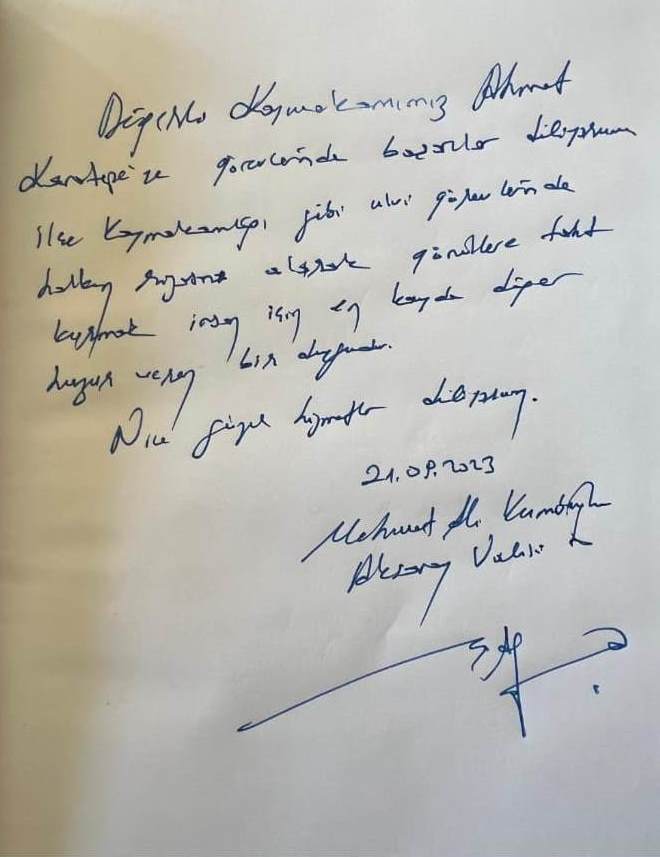 Değerli Kaymakamımız Ahmet
Karatepe'ye görevlerinde başarılar diliyorum
ilçe Kaymakamlığı gibi ulvi görevlerinde
halkın rızasını alarak gönüllere taht
kurmak insan için en kayda değer
huzur veren bir duygudur.
Nice güzel hizmetler diliyorum.
21.09.2023
Mehmet Ali Kumbuzoğlu
Aksaray Valisi